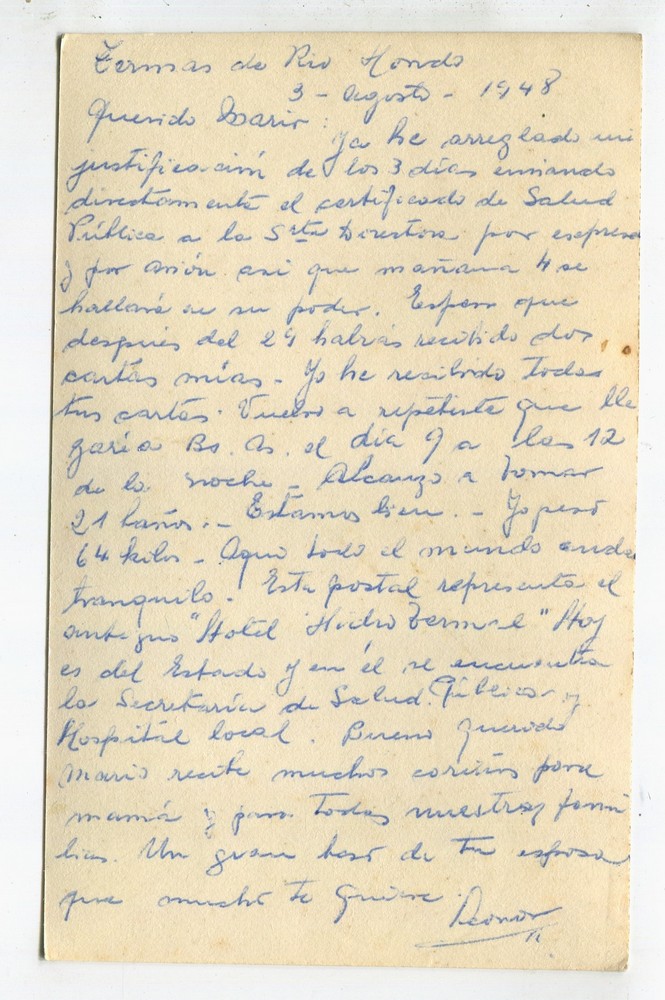 Termas de Rio Hondo
3 - Agosto - 1948
Querido Mario:
Ya he arreglado mi
justificación de los 3 días enviando
directamente el certificado de Salud
Pública a la Srta Directora por expreso
y por avión así que mañana 4 se
hallará en su poder. Espero que
después del 29 habrás recibido dos
cartas mías - Yo he recibido todas
tus cartas. Vuelvo a repetirte que lle
garía Bs. As. el día 9 a las 12
de la noche - Alcanzo a tomar
21 baños. - Estamos bien. - Yo pesó
64 kilos - Aquí todo el mundo anda
tranquilo. Esta postal representa el
antiguo "Hotel Hidro Termal" Hoy
es del Estado y en él se encuentra
la Secretaría de Salud Pública y
Hospital local. Bueno querido
Mario recibe muchos cariños para
mamá y para todas nuestras fami
lias. Un gran beso de tu esposa
que mucho te quiere.
Leonor